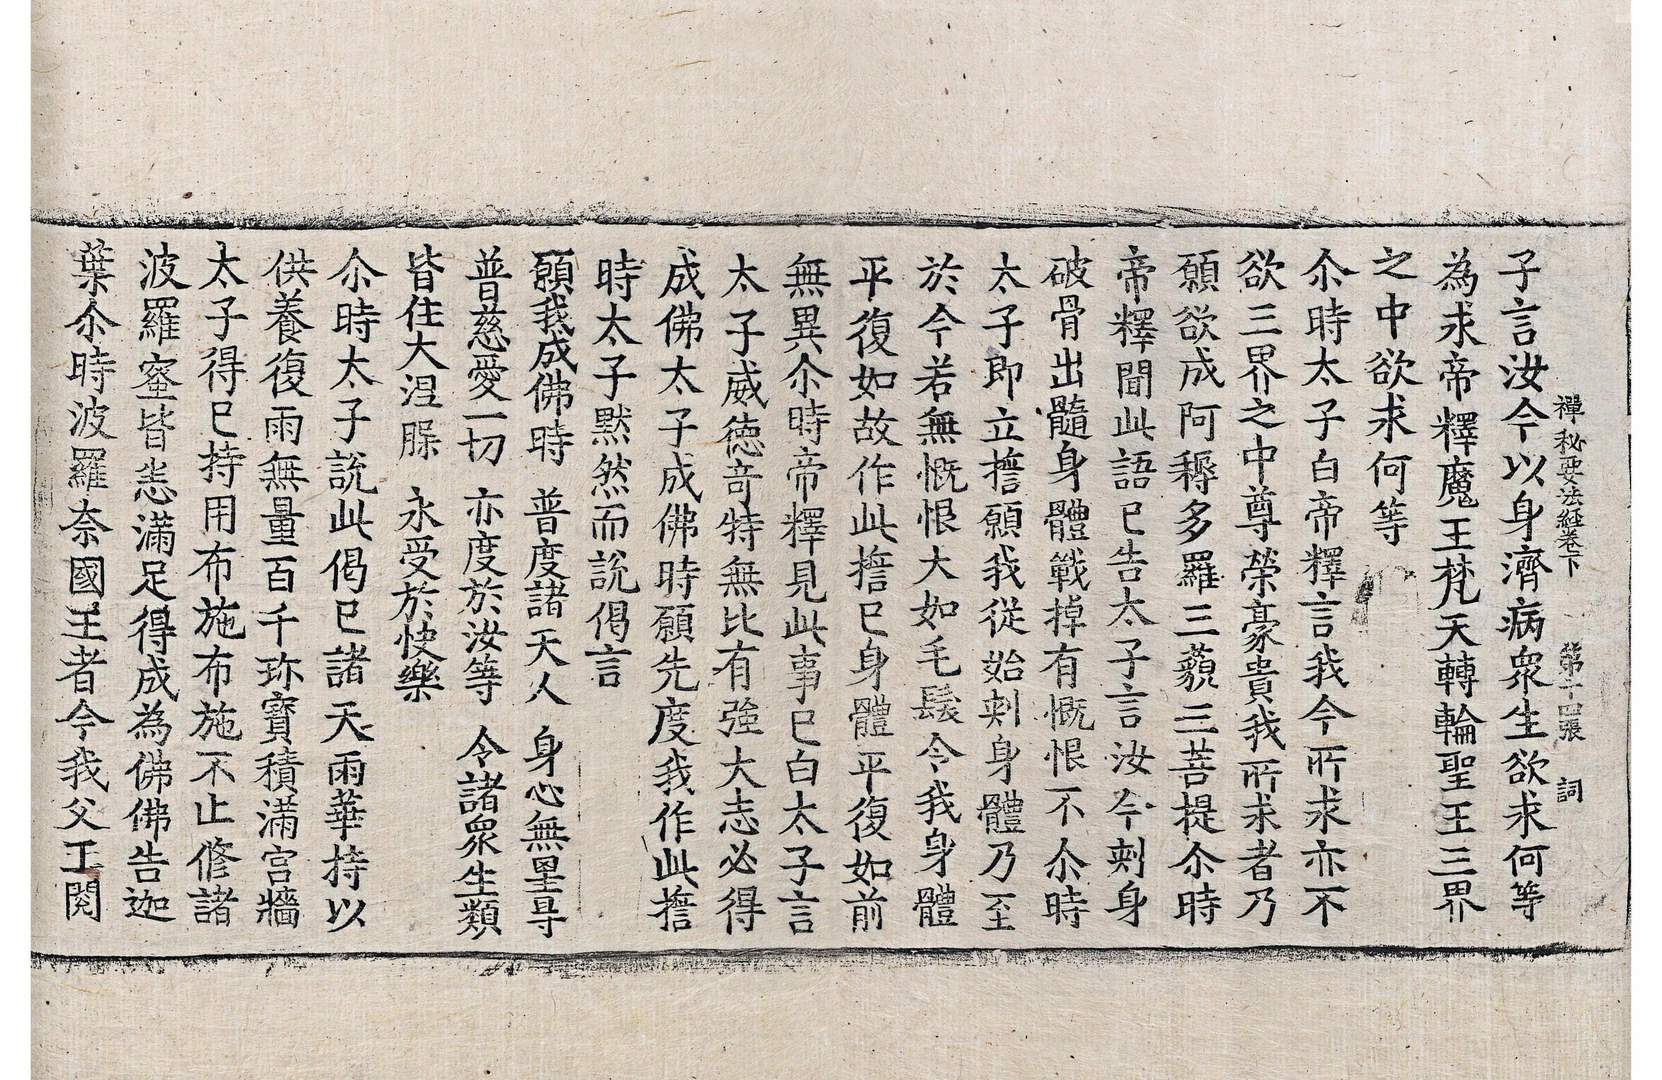 禪秘要法經卷下　第十四張　詞
子言汝今以身濟病衆生欲求何等
為求帝釋魔王梵天轉輪聖王三界
之中欲求何等
尒時太子白帝釋言我今所求亦不
欲三界之中尊榮豪貴我所求者乃
願欲成阿耨多羅三藐三菩提尒時
帝釋聞此語已告太子言汝今刺身
破骨出髓身體戰掉有慨恨不尒時
太子即立擔願我從始刺身體乃至
於今若無慨恨大如毛髮令我身體
平復如故作此擔已身體平復如前
無異尒時帝釋見此事已白太子言
太子威德奇特無比有強大志必得
成佛太子成佛時願先度我作此擔
時太子默然而說偈言
願我成佛時　普度諸天人　身心無罣㝵
普慈愛一切　亦度於汝等　令諸衆生類
皆住大涅槃　永受於快樂
尒時太子說此偈已諸天雨華持以
供養復雨無量百千珎寶積滿宮牆
太子得已持用布施布施不止修諸
波羅蜜皆悉滿足得成為佛佛告迦
葉尒時波羅奈國王者今我父王閱